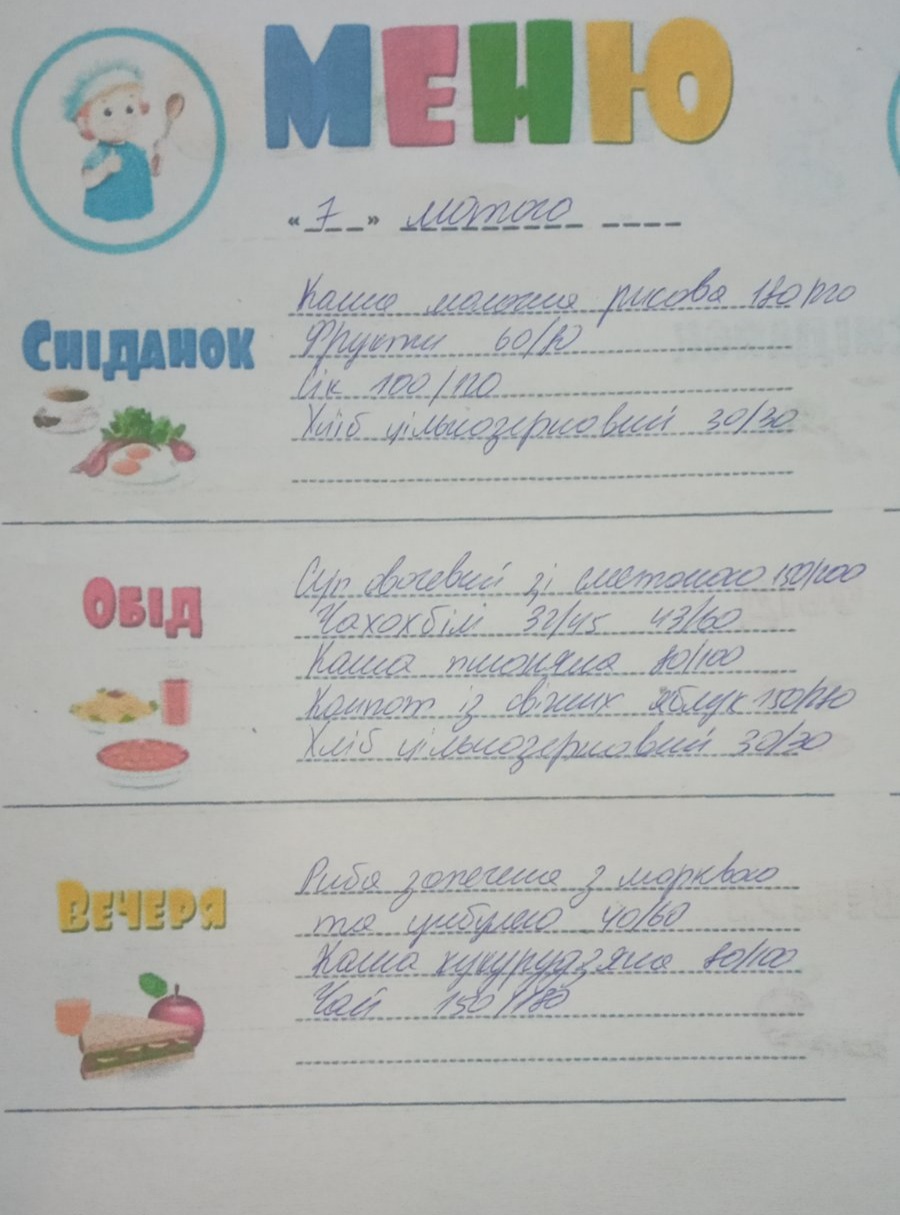 МЕНЮ
«7» лютого
СНІДАНОК
Каша молочна рисова 180/
Фрукти 60/80
Сік 100/120
Хліб цільнозерновий 30/30
ОБІД
Суп овочевий зі сметаною 150/200
Чахохбілі 32/45 43/60
Каша пшоняна 80/100
Компот із свіжих яблук 150/180
Хліб цільнозерновий 30/30
ВЕЧЕРЯ
Риба запечена з морквою
та цибулею 40/60
Каша кукурудзяна 80/100
Чай 150/180